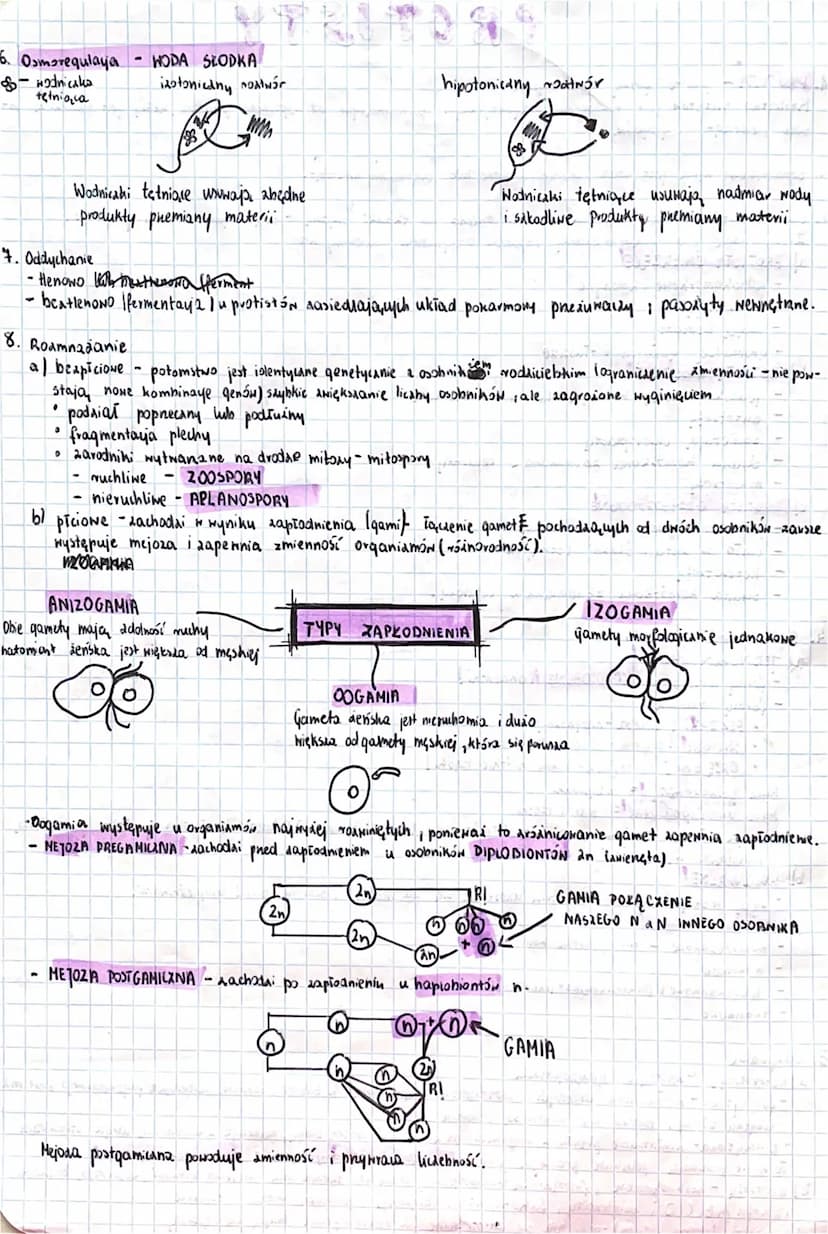 6. Osmoregulacja - WODA SŁODKA
- wodniczka tętniąca
izotoniczny roztwór
hipotoniczny roztwór
Wodniczki tętniące usuwają zbędne
produkty przemiany materii
Wodniczki tętniące usuwają nadmiar wody
i szkodliwe produkty przemiany materii
7. Oddychanie
- tlenowo
- beztlenowo (fermentacja) u protistów zasiedlających układ pokarmowy przeżuwaczy i pasożyty wewnętrzne.
8. Rozmnażanie
a) bezpłciowe - potomstwo jest identyczne genetycznie z osobnikiem rodzicielskim (ograniczenie zmienności - nie pow-
stają nowe kombinacje genów) szybkie zwiększanie liczby osobników, ale zagrożone wyginięciem
• podział poprzeczny lub podłużny
• fragmentacja plechy
• zarodniki wytwarzane na drodze mitozy - mitospory
- ruchliwe - ZOOSPORY
- nieruchliwe - APLANOSPORY
b) płciowe - zachodzi w wyniku zapłodnienia (gamii)- łączenie gamet pochodzących od dwóch osobników zawsze
występuje mejoza i zapewnia zmienność organizmów (różnorodność).
ANIZOGAMIA
Obie gamety mają zdolność ruchy
natomiast żeńska jest większa od męskiej
TYPY ZAPŁODNIENIA
IZOGAMIA
gamety morfologicznie jednakowe
OOGAMIA
Gameta żeńska jest nieruchomia i dużo
większa od gamety męskiej, która się porusza
-Oogamia występuje u organizmów najwyżej rozwiniętych, ponieważ to zróżnicowanie gamet zapewnia zapłodnienie.
- MEJOZA PREGAMICZNA - zachodzi przed zapłodnieniem u osobników DIPLOBIONTÓW 2n (zwierzęta)
2n
2n
2n
R!
n n n n
2n + n
GAMIA POŁĄCZENIE
NASZEGO N z N INNEGO OSOBNIKA
- MEJOZA POSTGAMICZNA - zachodzi po zapłodnieniu u haplobiontów n.
n
n
n + n
GAMIA
n
2n
R!
n
n
n
n
Mejoza postgamiczna powoduje zmienność i przywraca liczebność.